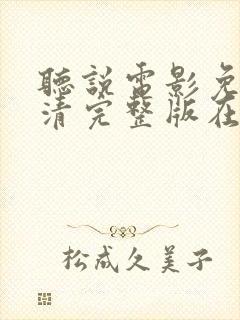 聽說電影免
清完整版在
松成久美子